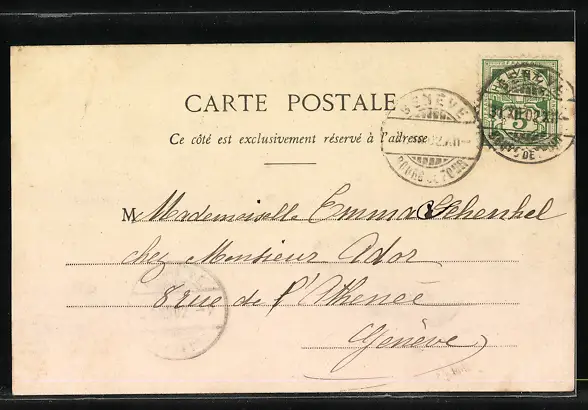 CARTE POSTALE
Ce côté est exclusivement réservé à l'adresse
GENÈVE
GENÈVE
31.XII.02.XII
5
M Mademoiselle Emma Schenkel
chez Monsieur Ador
8 rue de l'Athenée
Genève